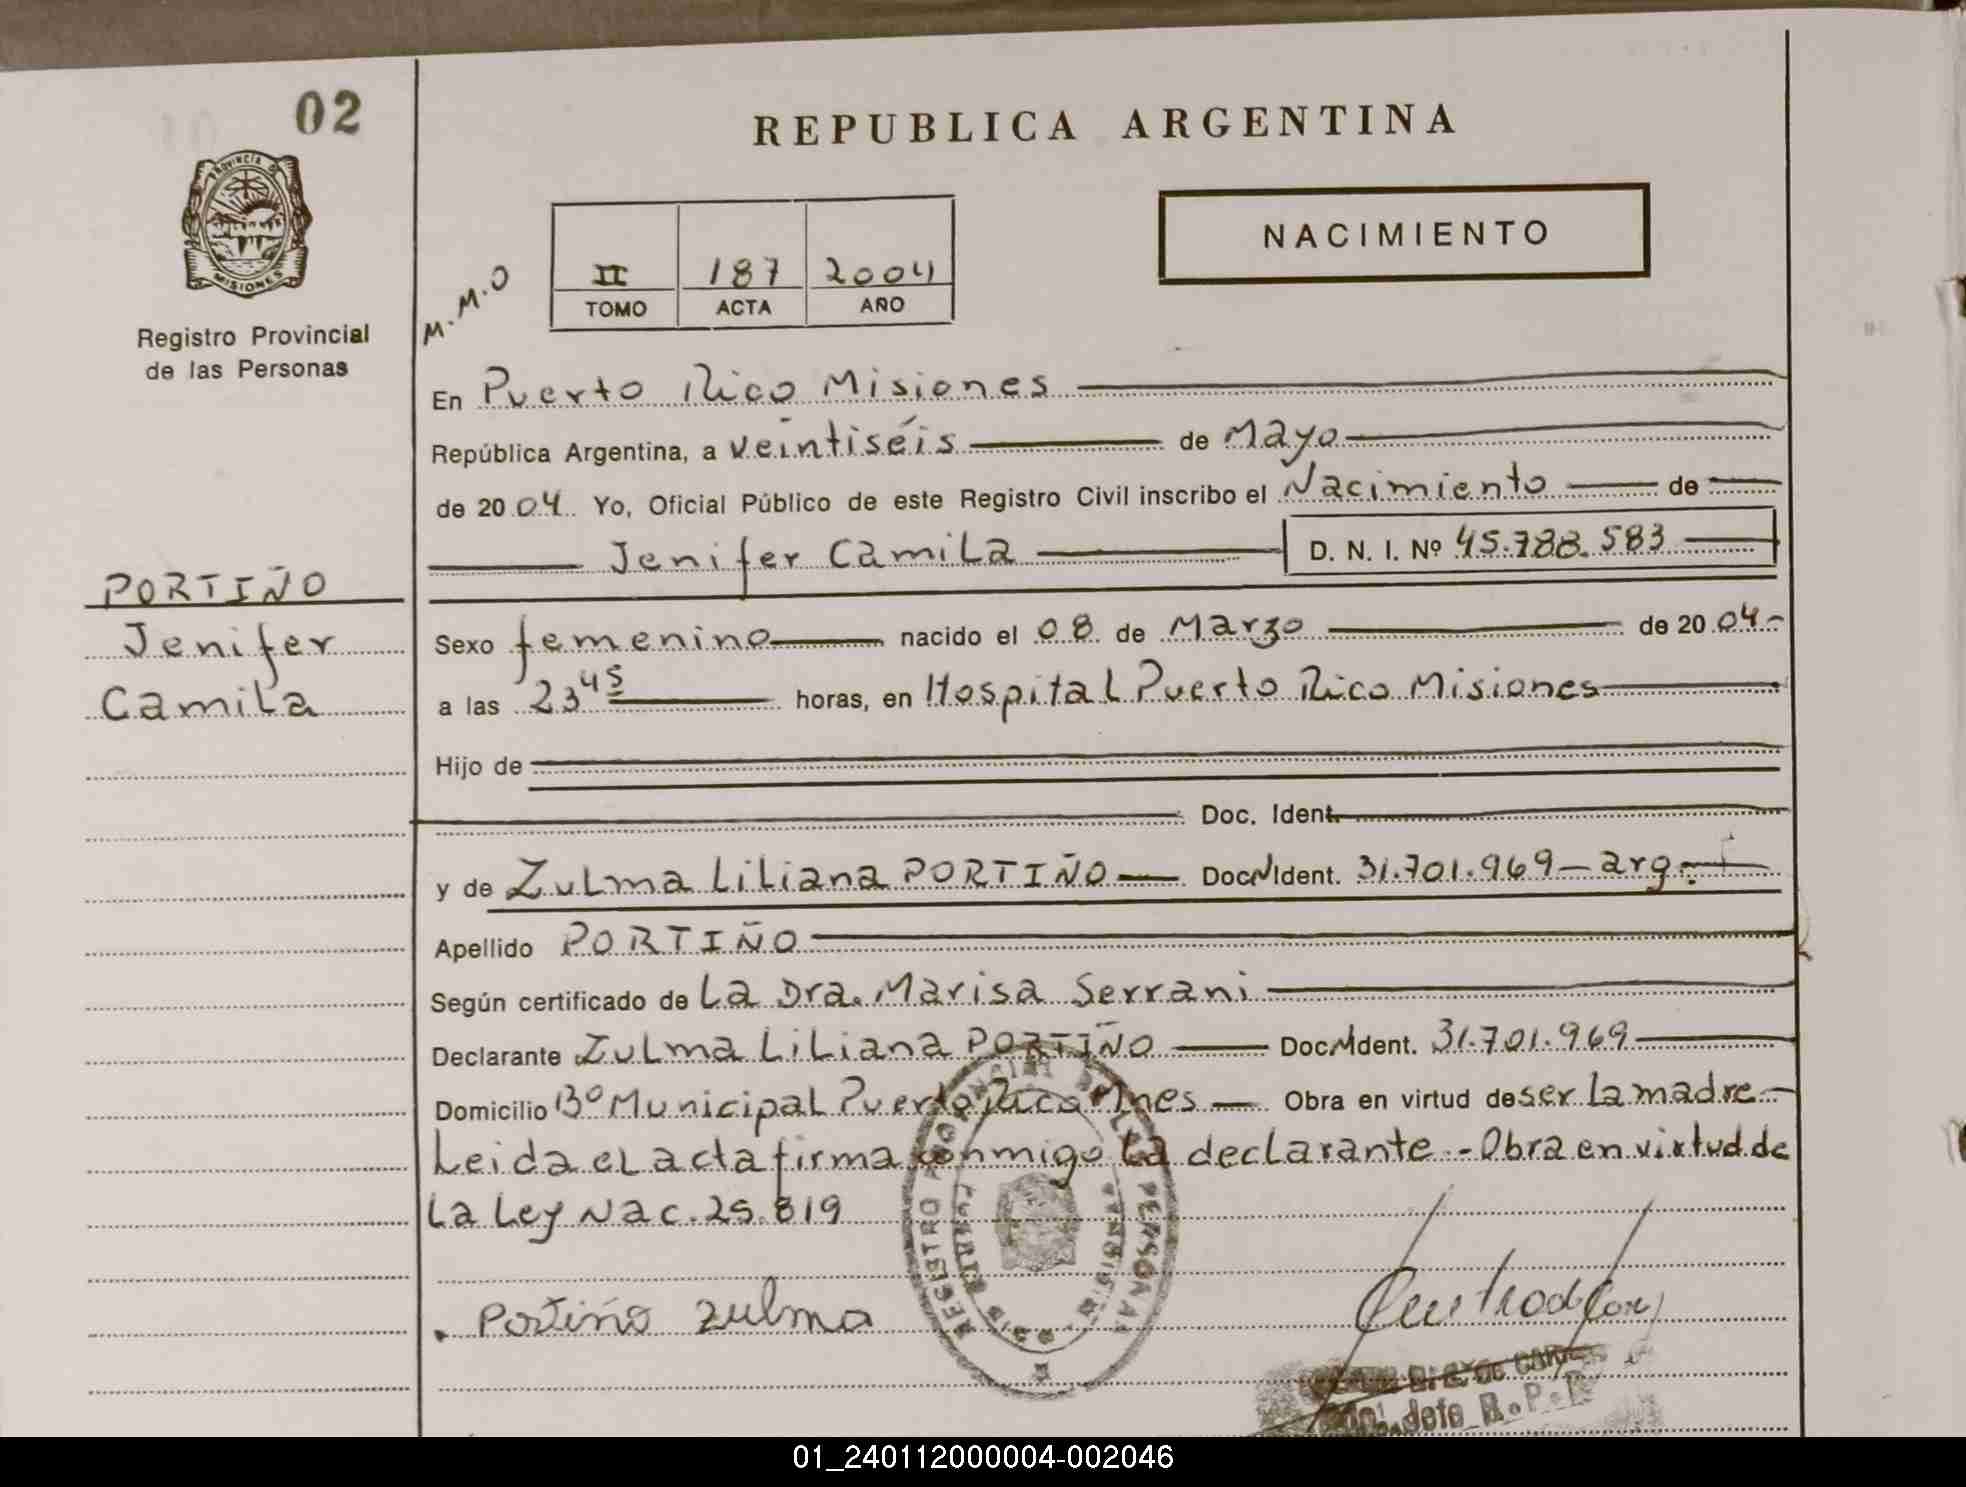 02
PROVINCIA DE
MISIONES
Registro Provincial
de las Personas
REPUBLICA ARGENTINA
NACIMIENTO
M.M.O
II 187 2004
TOMO ACTA AÑO
En Puerto Rico Misiones
República Argentina, a veintiséis de Mayo
de 2004. Yo, Oficial Público de este Registro Civil inscribo el Nacimiento de
Jenifer Camila D. N. I. Nº 45.788.583
PORTIÑO
Jenifer
Camila
Sexo femenino nacido el 08 de Marzo de 2004-
a las 23 45 horas, en Hospital Puerto Rico Misiones
Hijo de
Doc. Ident.
y de Zulma Liliana PORTIÑO — DocNIdent. 31.701.969 - arg.
Apellido PORTIÑO
Según certificado de La Dra. Marisa Serrani
Declarante Zulma Liliana PORTIÑO — Doc.NIdent. 31.701.969
Domicilio Bº Municipal Puerto Rico Mnes — Obra en virtud de ser la madre-
Leida el acta firma conmigo la declarante.- Obra en virtud de
La Ley Nac. 25.819
REGISTRO PROVINCIAL DE LAS PERSONAS
PUERTO RICO MISIONES
. Portiño Zulma
Jefe R.P.P
01_240112000004-002046